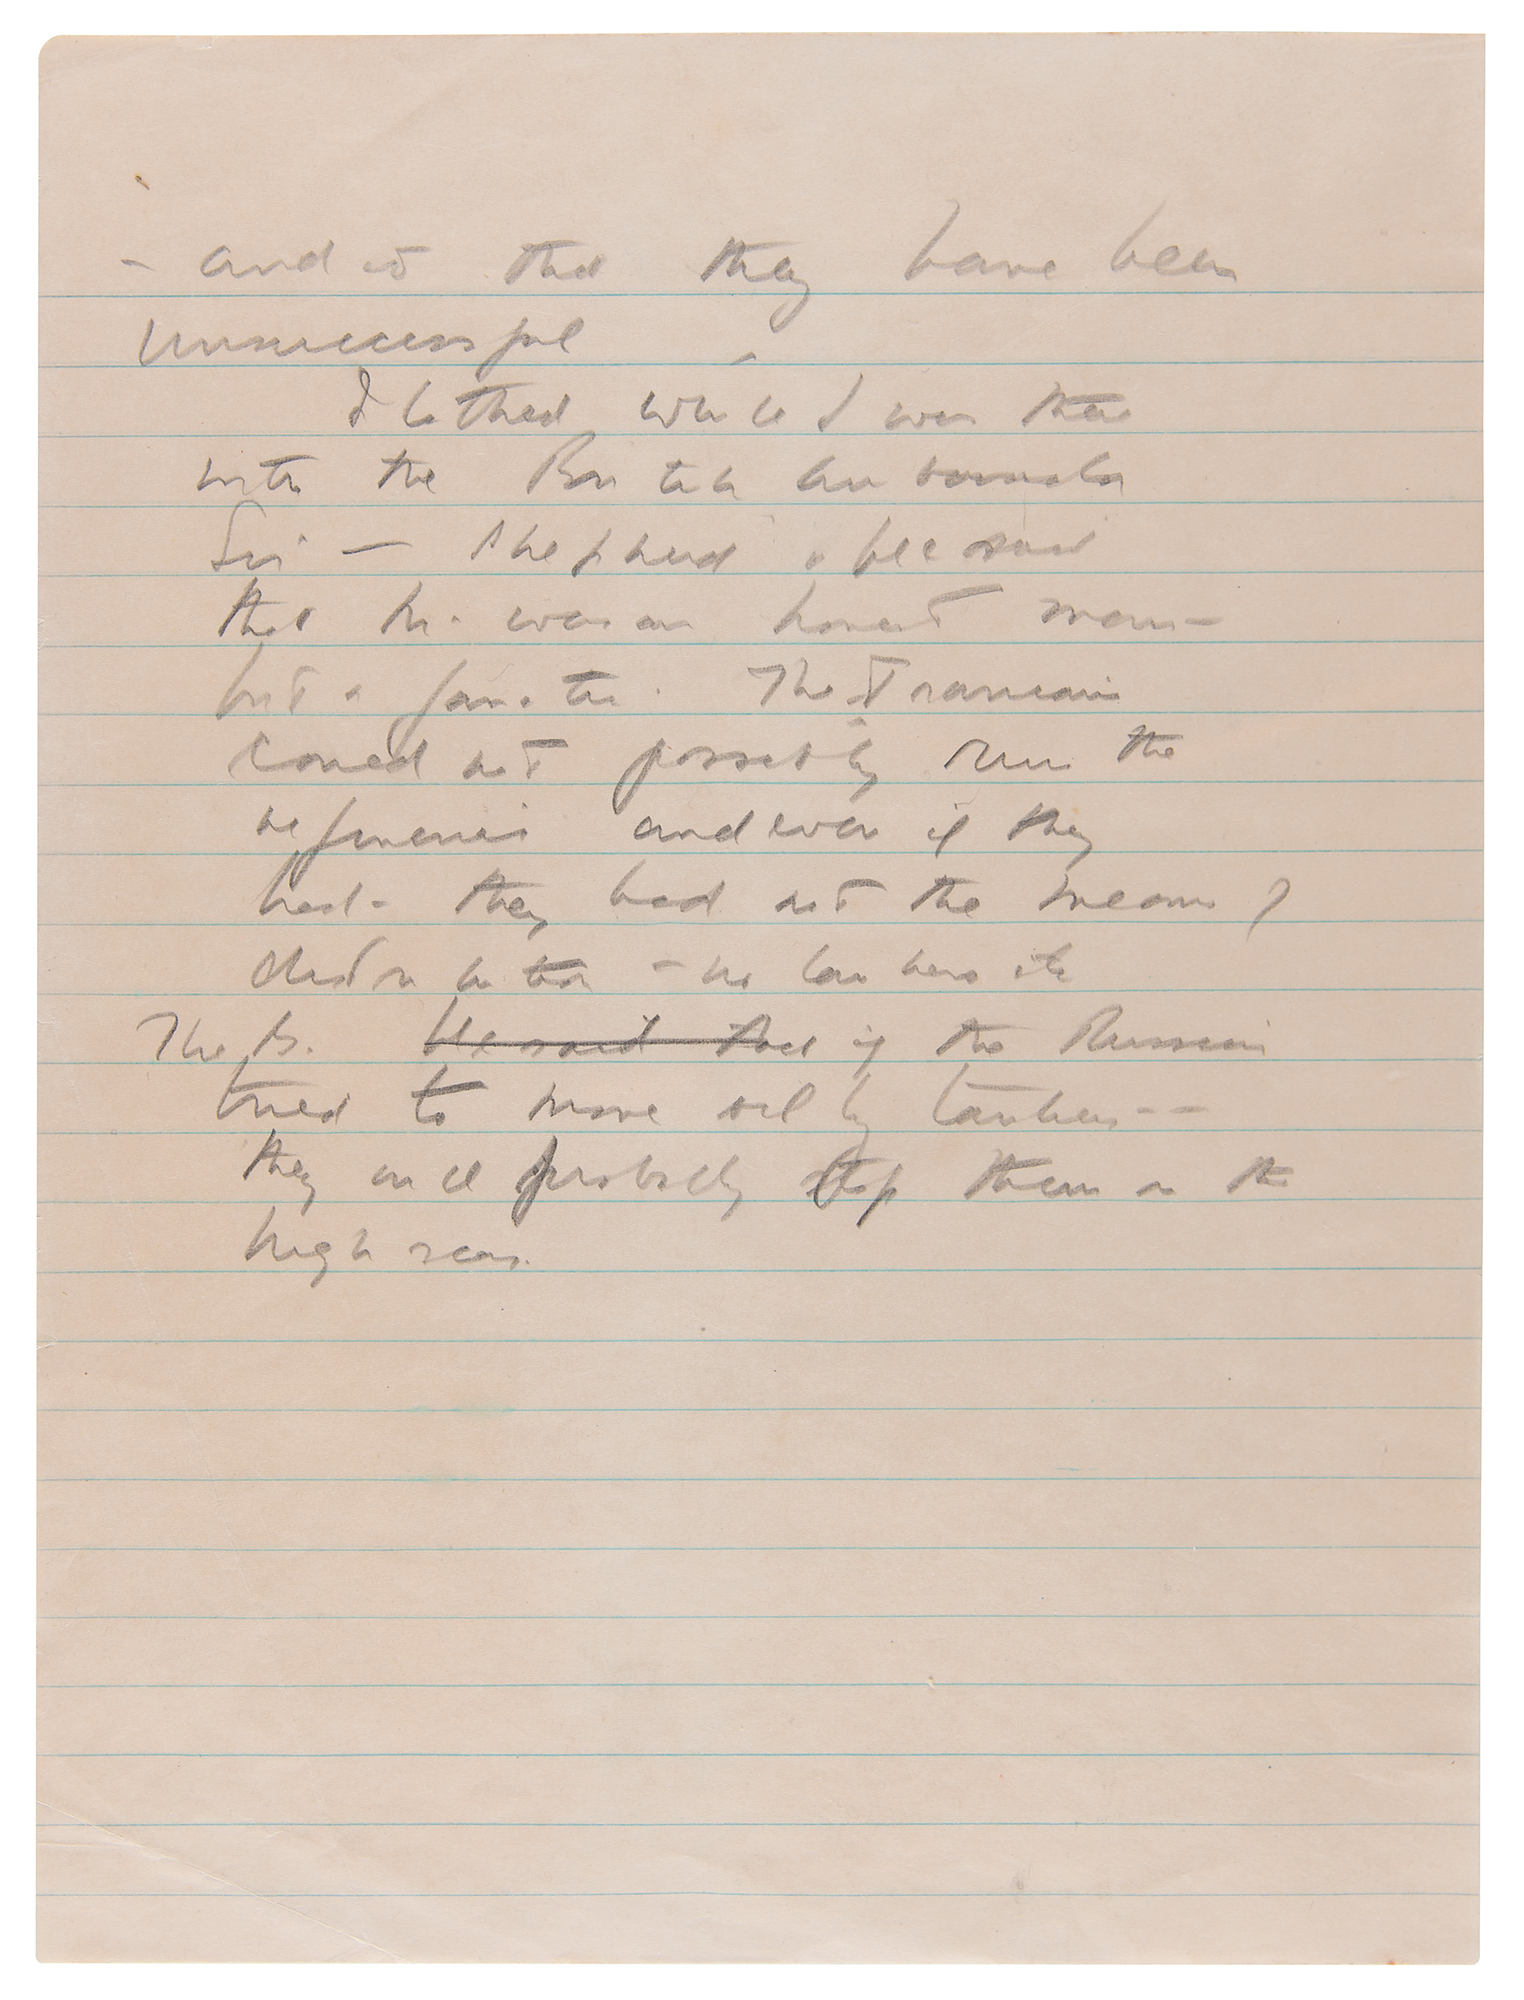 - and in that they have been
unsuccessful
I talked while I was there
with the British ambassador
Sir — Shepherd & he said
that Mr. was an honest man -
but a fanatic. The Iranians
could not possibly run the
refineries and even if they
had - they had not the means of
distribution - no tankers etc
The B. He said that if the Russians
tried to move oil by tankers --
they will probably stop them on the
high seas.